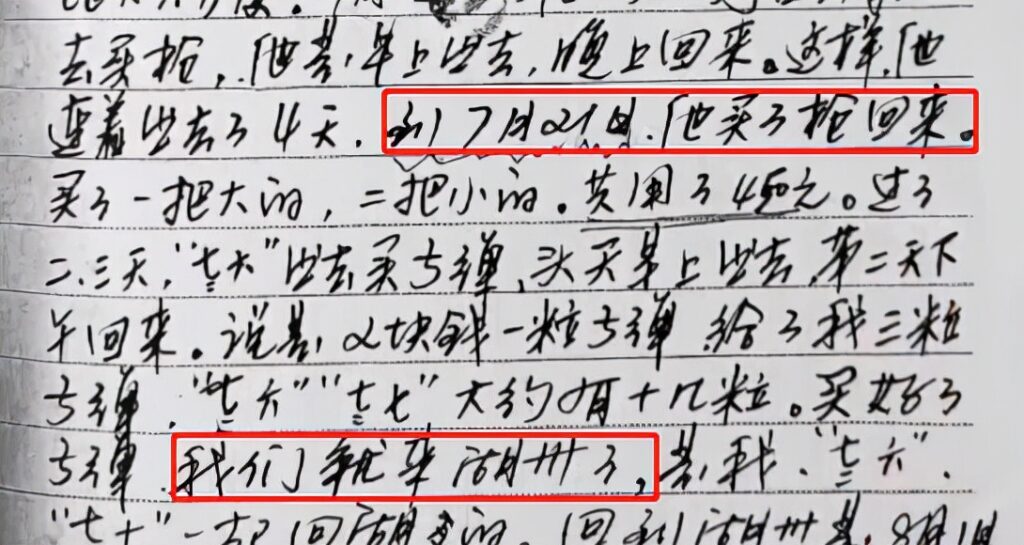 去买枪,他是早上出去,晚上回来。这样,他
连着出去了4天,到7月21日,他买了枪回来。
买了一把大的,二把小的。共用了450元。过了
二、三天,"七六"出去买子弹,头天早上出去,第二天下
午回来。说是,2块钱一粒子弹,给了我三粒
子弹,"七六""七七"大约有十几粒。买好了
子弹,我们就来湖州了,是我、"七六"、
一起回湖州的,回到湖州是,8月1日